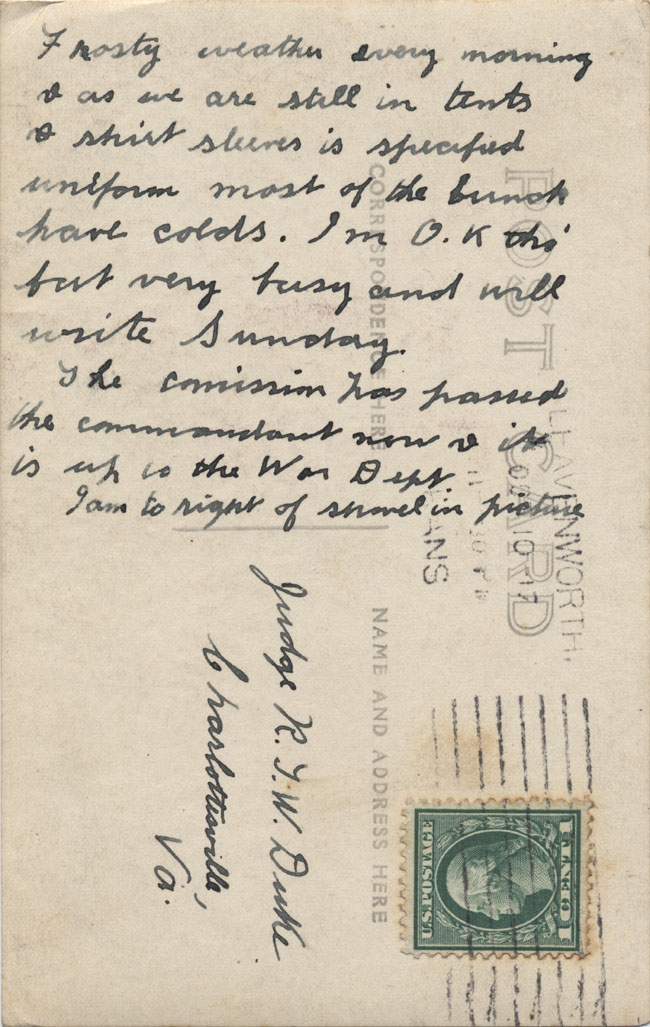 Frosty weather every morning
& as we are still in tents
& shirt sleeves is specified
uniform most of the bunch
have colds. I'm O.K tho'
but very busy and will
write Sunday.
The comission has passed
the commandant now & it
is up to the War Dept
I am to right of shovel in picture
POST CARD
CORRESPONDENCE HERE
NAME AND ADDRESS HERE
LEAVENWORTH,
KANS
Judge R.T.W. Duke
Charlottesville,
Va.
U.S. POSTAGE
1 CENT 1